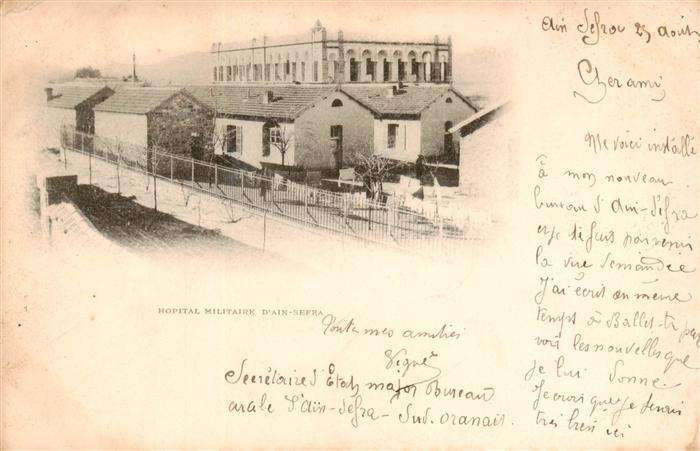 Ain Sefra 25 Août
Cher ami
Me voici installé
à mon nouveau
bureau d'Ain-Sefra
et je te fais parvenir
la vue demandée
J'ai écrit en même
temps à Ballet
voir les nouvelles que
je lui donne
Je crois que je serais
très bien ici
HOPITAL MILITAIRE D'AIN-SEFRA
Toutes mes amitiés
Vigné
Secrétaire d'Etat major Bureau
arabe d'Ain-Sefra - Sud. oranais.